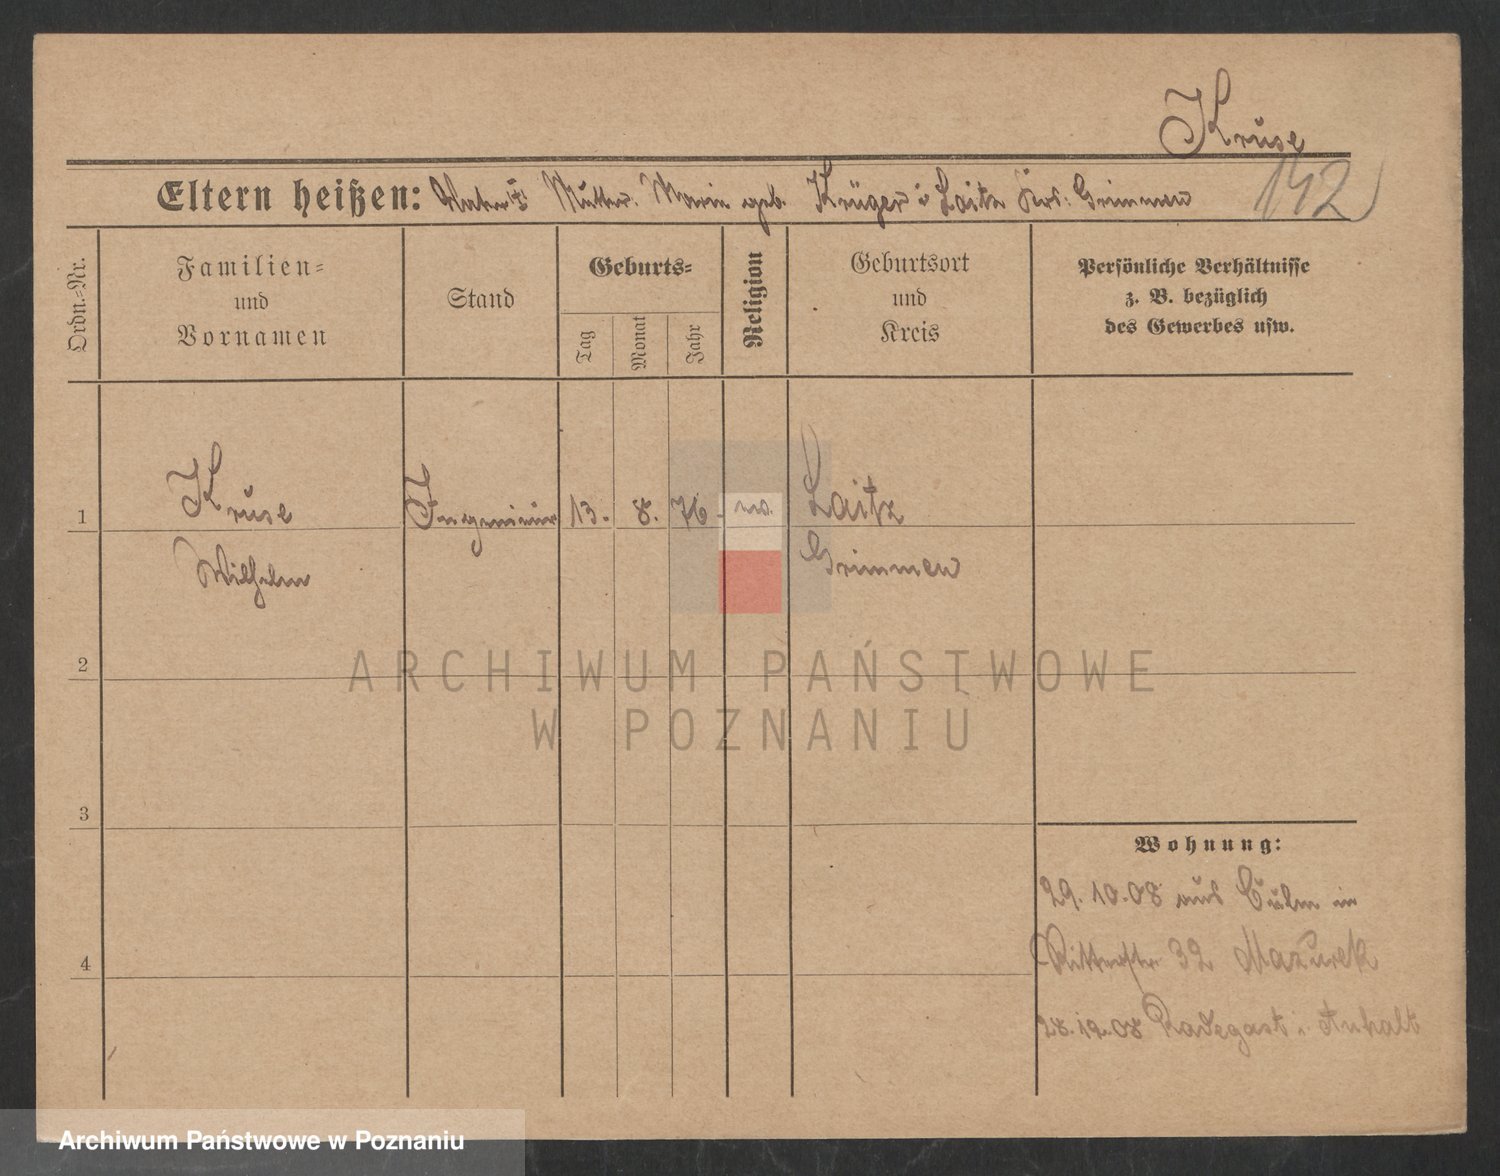 Kruse
Eltern heißen: Vater † Mutter. Marie geb. Krüger i Loitz Krs. Grimmen
142
Ordn.-Nr.
Familien-
und
Vornamen
Stand
Geburts-
Tag
Monat
Jahr
Religion
Geburtsort
und
Kreis
Persönliche Verhältnisse
z. B. bezüglich
des Gewerbes usw.
1
Kruse
Wilhelm
Ingenieur
13.
8.
76.
ev.
Loitz
Grimmen
2
ARCHIWUM PAŃSTWOWE
W POZNANIU
3
4
Wohnung:
29.10.08 aus Culm in
Ritterstr 32 Mazurek
28.12.08 Radegast i. Anhalt
Archiwum Państwowe w Poznaniu